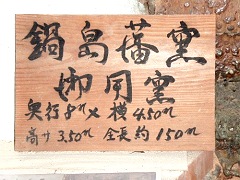 鍋島藩窯
御用窯
奥行8m×横4.50m
高サ3.50m 全長約150m